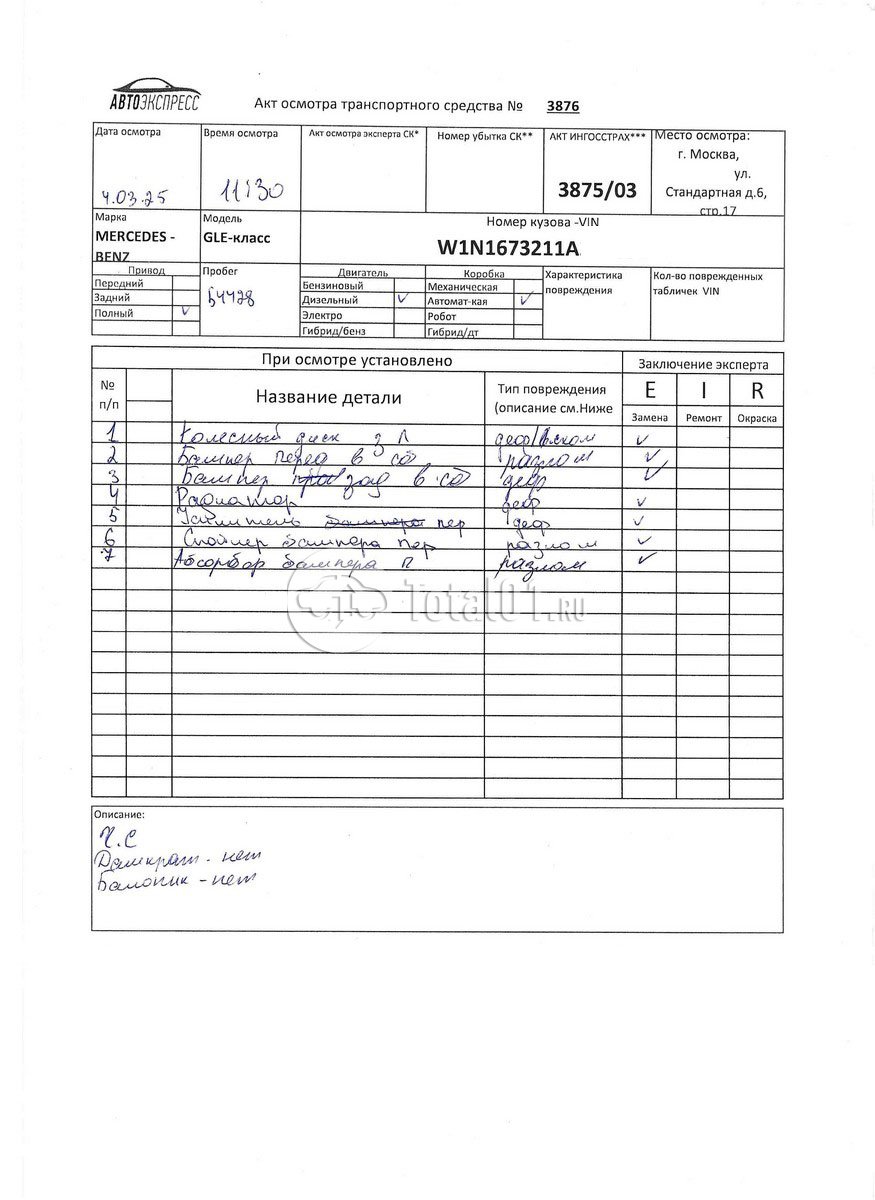 АВТОЭКСПРЕСС
Акт осмотра транспортного средства № 3876
Дата осмотра
Время осмотра
Акт осмотра эксперта СК*
Номер убытка СК**
АКТ ИНГОССТРАХ***
Место осмотра:
г. Москва,
ул.
Стандартная д.6,
стр.17
4.03.25
11:30
3875/03
Марка
Модель
Номер кузова -VIN
MERCEDES -
BENZ
GLE-класс
W1N1673211A
Привод
Пробег
Двигатель
Коробка
Характеристика
повреждения
Кол-во поврежденных
табличек VIN
Передний
Бензиновый
Механическая
Задний
54428
Дизельный ✓
Автомат-кая ✓
Полный ✓
Электро
Робот
Гибрид/бенз
Гибрид/дт
При осмотре установлено
Заключение эксперта
№
п/п
Название детали
Тип повреждения
(описание см.Ниже
E I R
Замена Ремонт Окраска
1 Колесный диск з Л деф/ ✓
2 Бампер перед в сб разлом ✓
3 Бампер зад в сб деф ✓
4 Радиатор деф ✓
5 Усилитель бампера пер деф ✓
6 Спойлер бампера пер разлом ✓
7 Абсорбер бампера П разлом ✓
Total01.RU
Описание:
Ч.С
Домкрат - нет
Балоник - нет